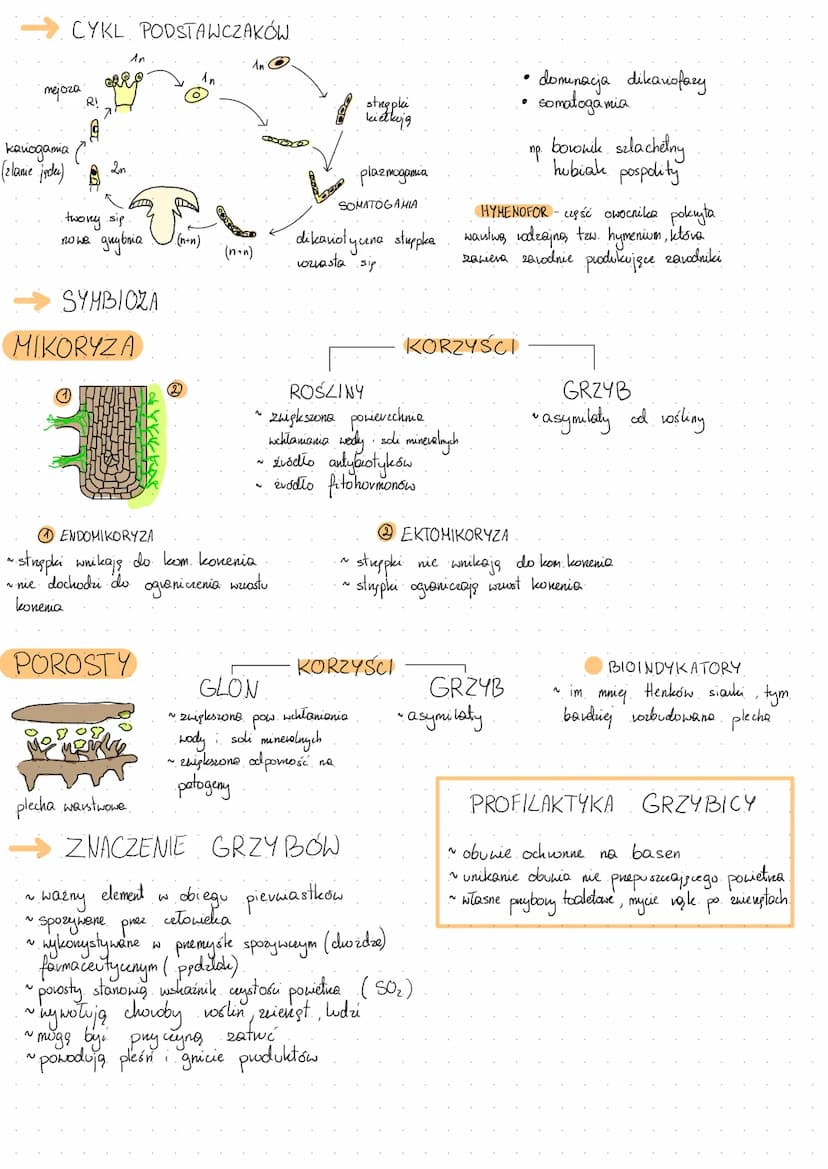 → CYKL PODSTAWCZAKÓW
1n
1n
1n
mejoza
R!
strzępki
kiełkują
kariogamia
(zlanie jąder)
2n
plazmogamia
SOMATOGAMIA
tworzy się
nowa grzybnia
(n+n)
(n+n)
dikariotyczna strzępka
rozrasta się
• dominacja dikariofazy
• somatogamia
np. borowik szlachetny
hubiak pospolity
HYMENOFOR - część owocnika pokryta
warstwą rodzajną, tzw. hymenium, która
zawiera zarodnie produkujące zarodniki
→ SYMBIOZA
MIKORYZA
KORZYŚCI
1
2
ROŚLINY
~ zwiększona powierzchnia
wchłaniania wody i soli mineralnych
~ źródło antybiotyków
~ źródło fitohormonów
GRZYB
~ asymilaty od rośliny
1 ENDOMIKORYZA
~ strzępki wnikają do kom. korzenia
~ nie dochodzi do ograniczenia wzrostu
korzenia
2 EKTOMIKORYZA
~ strzępki nie wnikają do kom. korzenia
~ strzępki ograniczają wzrost korzenia
POROSTY
KORZYŚCI
GLON
~ zwiększona pow. wchłaniania
wody i soli mineralnych
~ zwiększona odporność na
patogeny
GRZYB
~ asymilaty
BIOINDYKATORY
~ im mniej tlenków siarki, tym
bardziej rozbudowana plecha
plecha warstwowa
PROFILAKTYKA GRZYBICY
~ obuwie ochronne na basen
~ unikanie obuwia nie przepuszczającego powietrza
~ własne przybory toaletowe, mycie rąk po zwierzętach
→ ZNACZENIE GRZYBÓW
~ ważny element w obiegu pierwiastków
~ spożywane przez człowieka
~ wykorzystywane w przemyśle spożywczym (drożdże)
farmaceutycznym (pędzlak)
~ porosty stanowią wskaźnik czystości powietrza (SO₂)
~ wywołują choroby roślin, zwierząt, ludzi
~ mogą być przyczyną zatruć
~ powodują pleśń i gnicie produktów